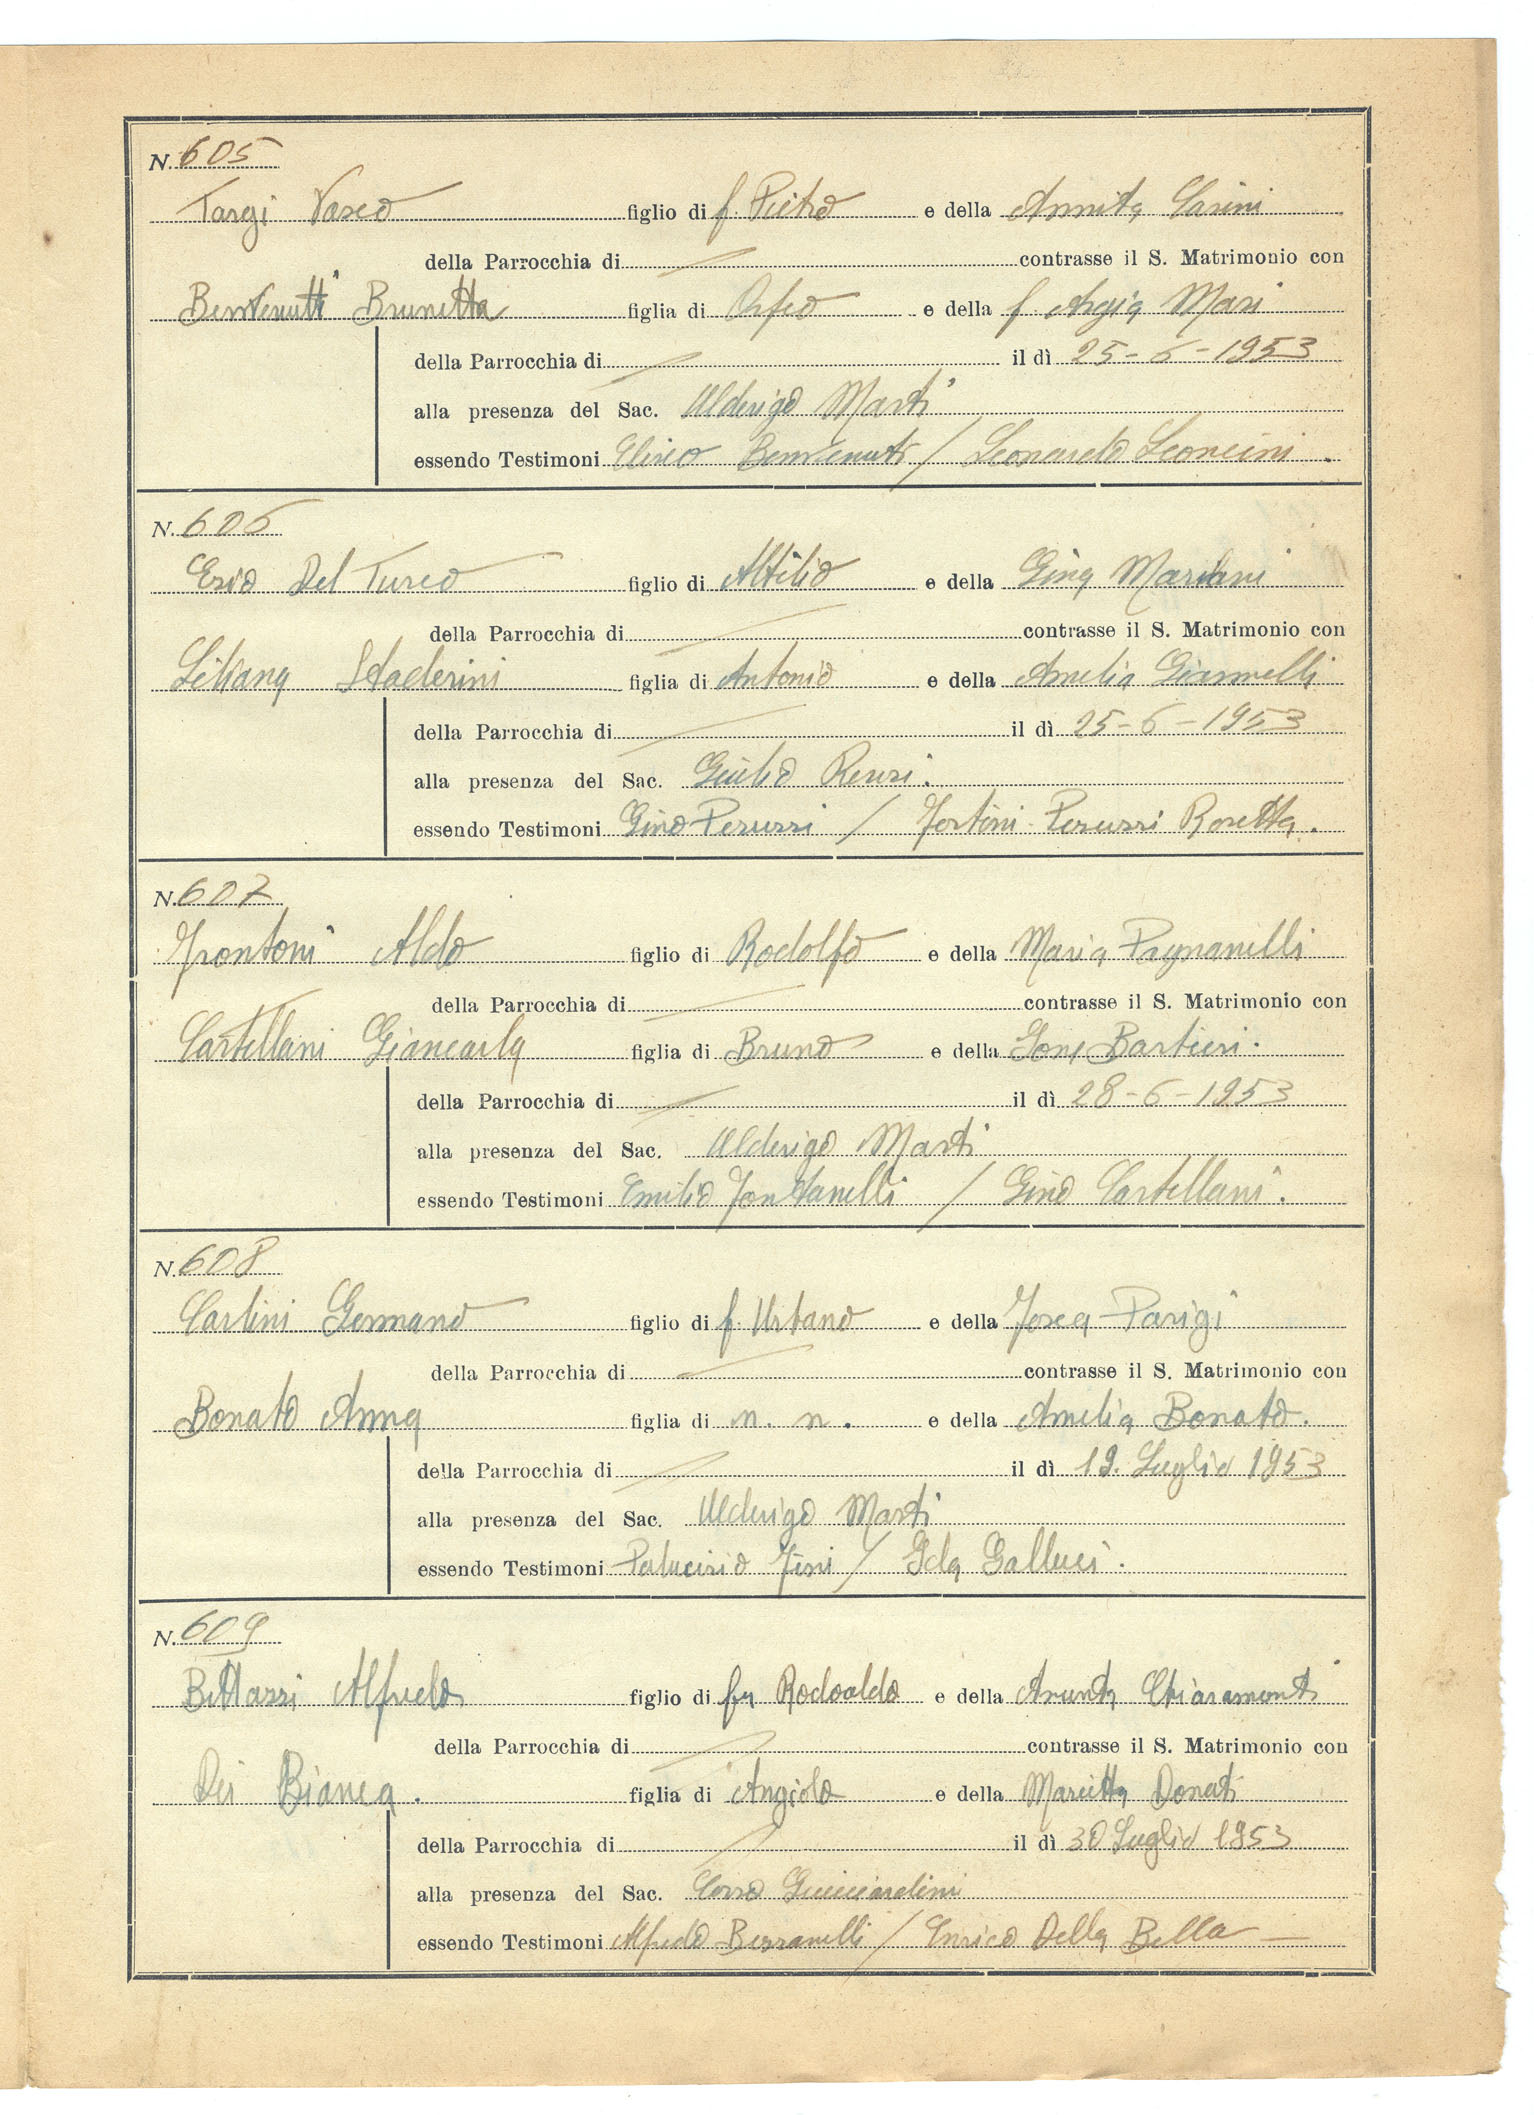 N. 605
Targi Vasco figlio di f. Pietro e della Annita Casini
della Parrocchia di contrasse il S. Matrimonio con
Benvenuti Brunetta figlia di Orfeo e della f Argia Masi
della Parrocchia di il dì 25-6-1953
alla presenza del Sac. Alderigo Masti
essendo Testimoni Eliseo Benvenuti / Leonardo Leoncini.
N. 606
Ezio Del Turco figlio di Attilio e della Gina
della Parrocchia di contrasse il S. Matrimonio con
Liliana Staderini figlia di Antonio e della Amelia Giannelli
della Parrocchia di il dì 25-6-1953
alla presenza del Sac. Giulio Renzi.
essendo Testimoni Gino Peruzzi / Fortini Peruzzi Rosetta.
N. 607
Frontoni Aldo figlio di Rodolfo e della Maria Pagnanelli
della Parrocchia di contrasse il S. Matrimonio con
Castellani Giancarla figlia di Bruno e della Ione Bastieri.
della Parrocchia di il dì 28-6-1953
alla presenza del Sac. Alderigo Masti
essendo Testimoni Emilio Fontanelli / Gino Castellani.
N. 608
Carlini Germano figlio di f. Urbano e della Parigi
della Parrocchia di contrasse il S. Matrimonio con
Bonato Anna figlia di n. n. e della Amelia Bonato.
della Parrocchia di il dì 19. Luglio 1953
alla presenza del Sac. Alderigo Masti
essendo Testimoni Fini / Ida Galluci.
N. 609
Bettazzi Alfredo figlio di fu Rodoaldo e della Assunta Chiaramonti
della Parrocchia di contrasse il S. Matrimonio con
Dei Bianca. figlia di Angiolo e della Marietta Donati
della Parrocchia di il dì 30 Luglio 1953
alla presenza del Sac. Corso Guicciardini
essendo Testimoni Alfredo Bezzanelli / Enrico Della Bella